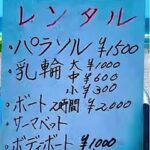 レンタル
・パラソル ¥1500
・乳輪 大 ¥1000
中 ¥600
小 ¥300
・ボート 2時間 ¥2,000
・サーマベット
・ボディボート ¥1000